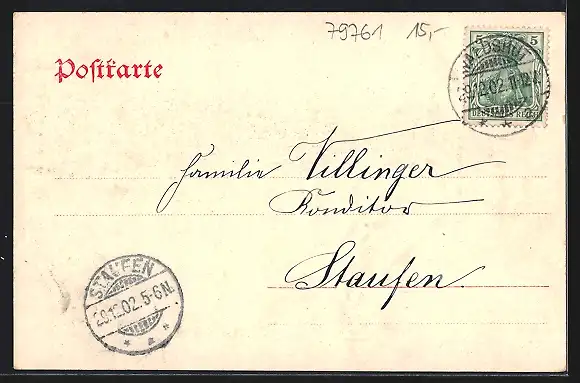 79761 15,-
Postkarte
5 5
DEUTSCHES REICH
WALDSHUT
28.12.02.
Familie Villinger
Konditor
Staufen.
STAUFEN
28.12.02.5-6N.